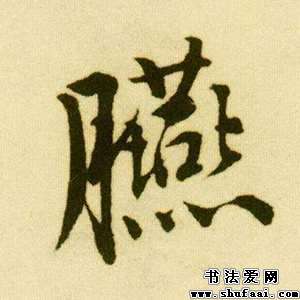 臙
书法爱网
www.shufaai.com